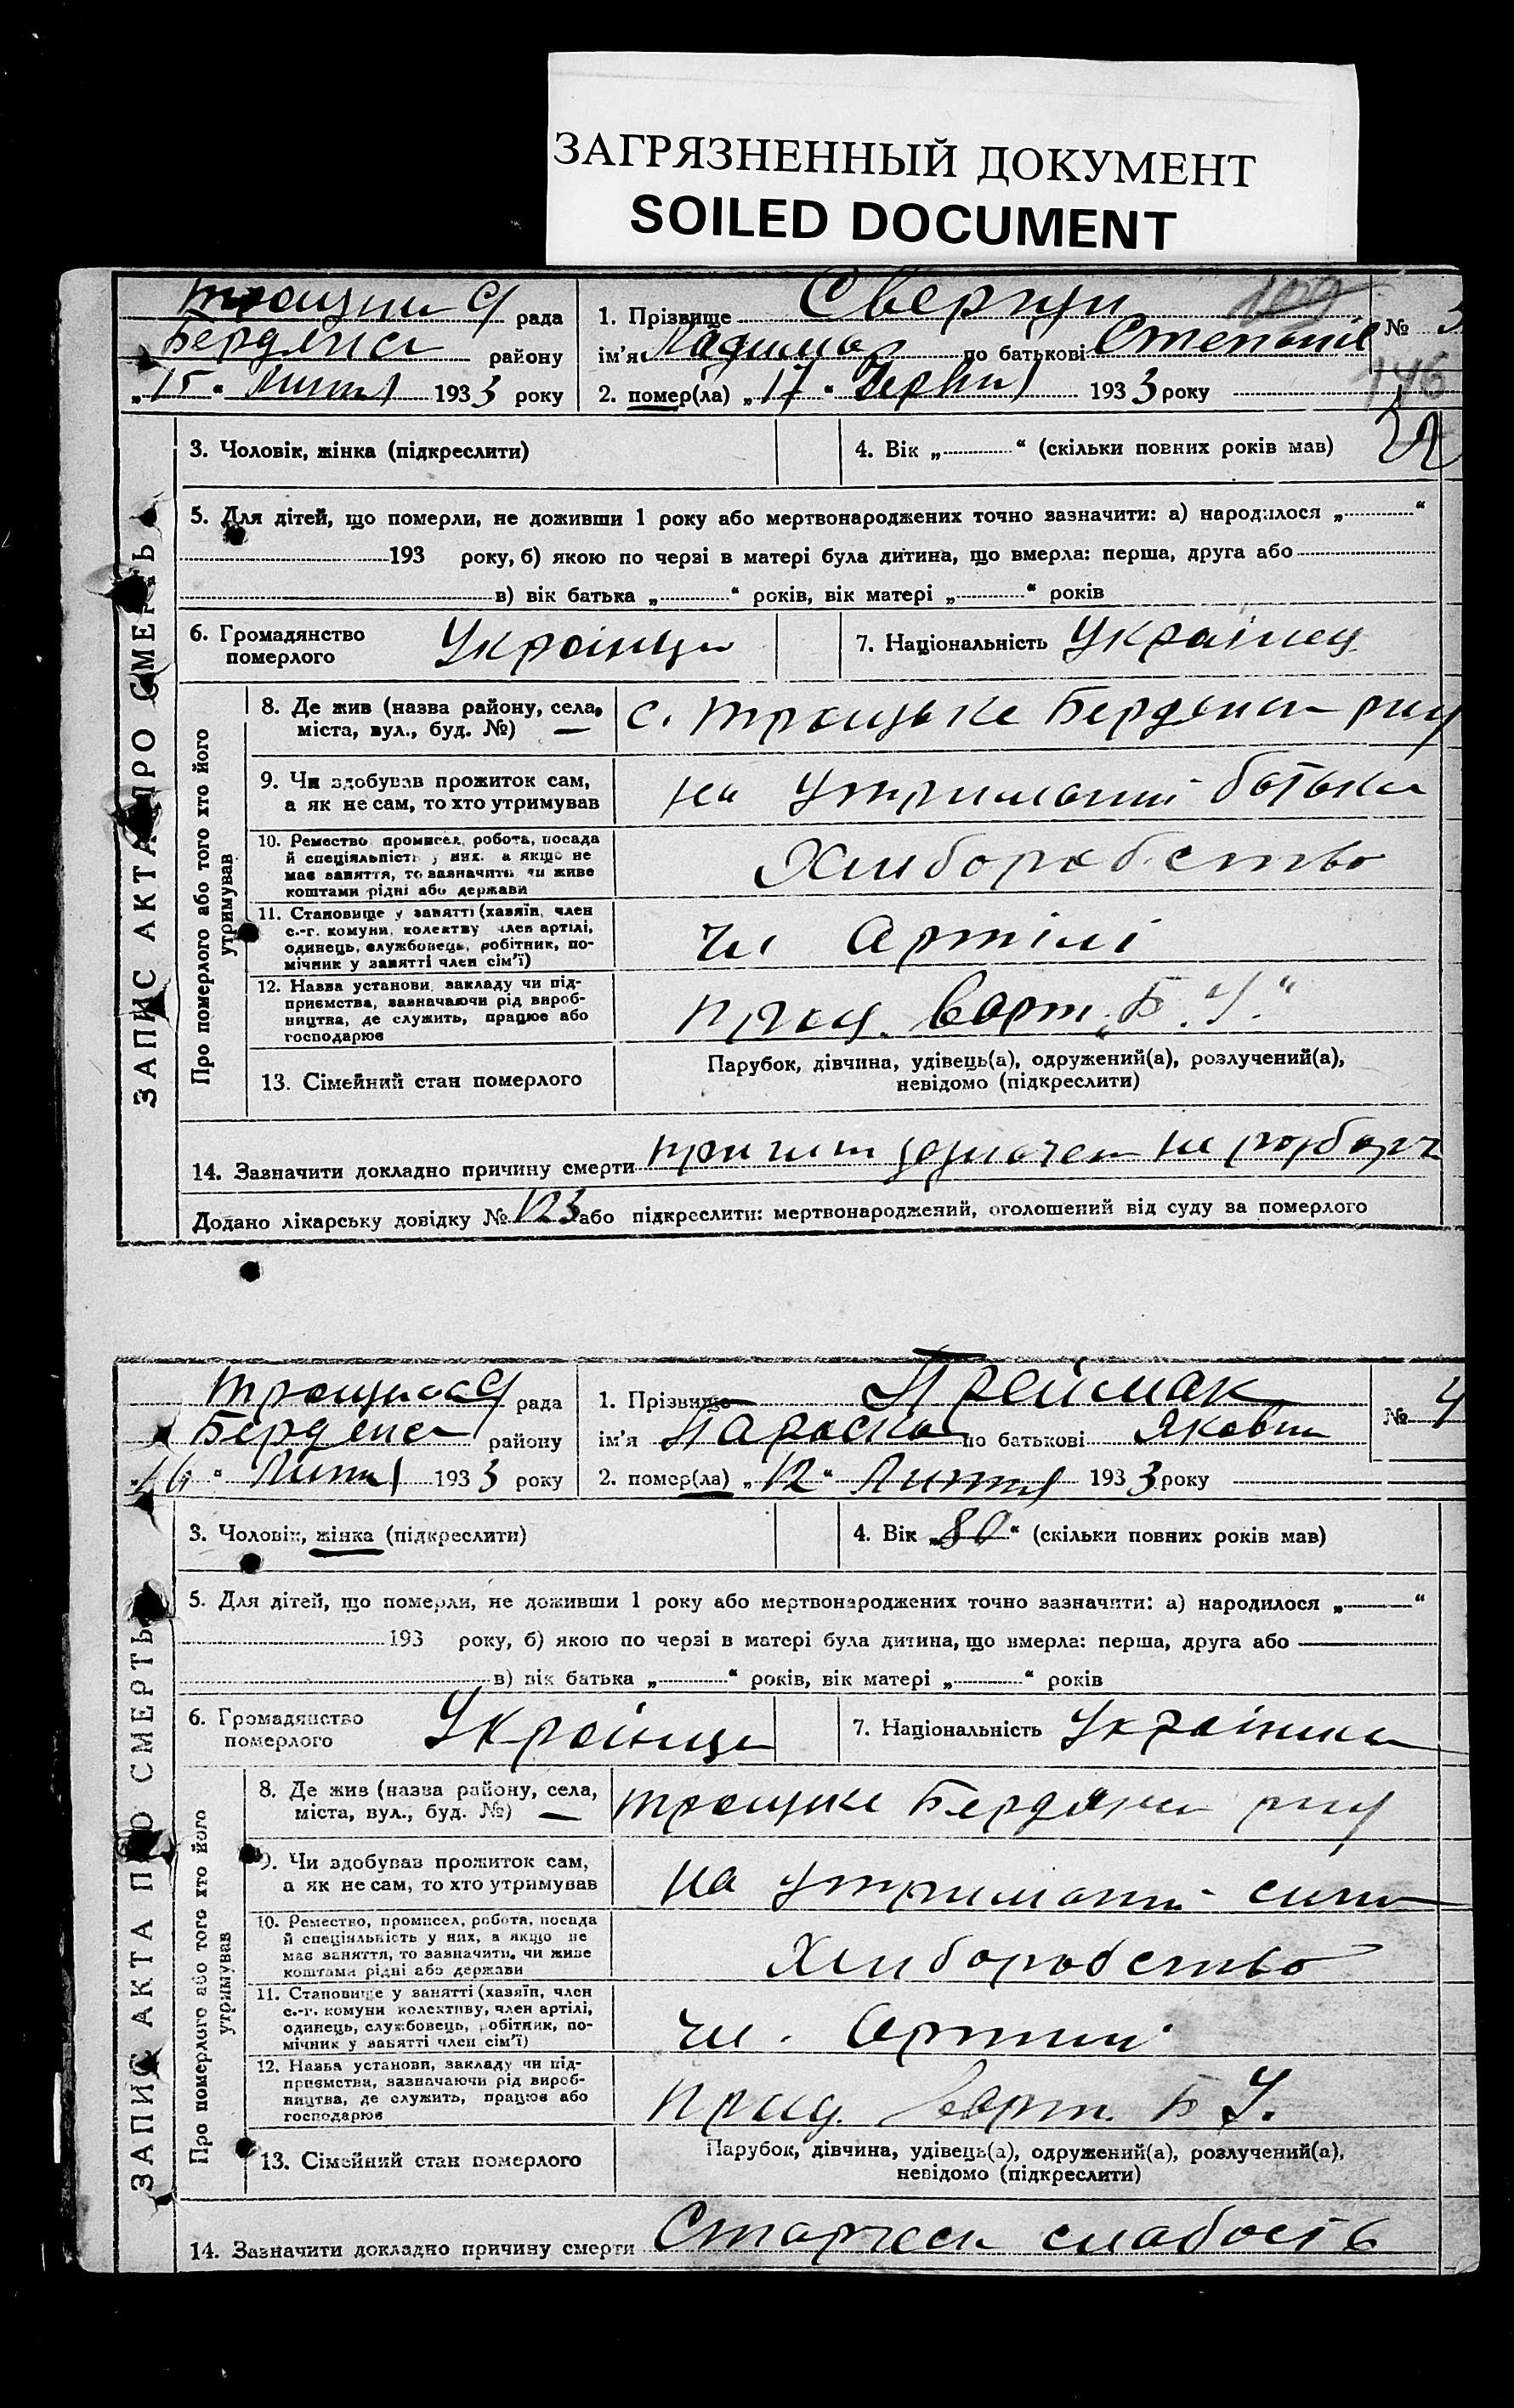 ЗАГРЯЗНЕННЫЙ ДОКУМЕНТ
SOILED DOCUMENT
рада
району
„15“ 1933 року
1. Прізвище
ім'я по батькові
2. помер(ла) „17“ 1933 року
№ 3
109
146
3. Чоловік, жінка (підкреслити)
4. Вік „ “ (скільки повних років мав)
5. Для дітей, що померли, не доживши 1 року або мертвонароджених точно зазначити: а) народилося „ “
193 року, б) якою по черзі в матері була дитина, що вмерла: перша, друга або
в) вік батька „ “ років, вік матері „ “ років
6. Громадянство
померлого
7. Національність Українец
ЗАПИС АКТА ПРО СМЕРТЬ
Про померлого або того хто його
утримував
8. Де жив (назва району, села,
міста, вул., буд. №) —
с. Троцьке
9. Чи здобував прожиток сам,
а як не сам, то хто утримував
на утриманні батька
10. Ремество, промисел, робота, посада
й спеціяльність у них, а якщо не
має заняття, то зазначити, чи живе
коштами рідні або держави
Хлиборобство
11. Становище у занятті (хазяїн, член
с.-г. комуни, колективу, член артілі,
одинець, службовець, робітник, по-
мічник у занятті член сім'ї)
чл Артілі
12. Назва установи, закладу чи під-
приємства, зазначаючи рід вироб-
ництва, де служить, працює або
господарює
„Б. У.“
13. Сімейний стан померлого
Парубок, дівчина, удівець(а), одружений(а), розлучений(а),
невідомо (підкреслити)
14. Зазначити докладно причину смерти
Додано лікарську довідку № 123 або підкреслити: мертвонароджений, оголошений від суду за померлого
рада
району
1933 року
1. Прізвище
ім'я Параска по батькові
2. помер(ла) „12“ 1933 року
№ 4
3. Чоловік, жінка (підкреслити)
4. Вік „80“ (скільки повних років мав)
5. Для дітей, що померли, не доживши 1 року або мертвонароджених точно зазначити: а) народилося „ “
193 року, б) якою по черзі в матері була дитина, що вмерла: перша, друга або
в) вік батька „ “ років, вік матері „ “ років
6. Громадянство
померлого
7. Національність Українка
ЗАПИС АКТА ПРО СМЕРТЬ
Про померлого або того хто його
утримував
8. Де жив (назва району, села,
міста, вул., буд. №) —
9. Чи здобував прожиток сам,
а як не сам, то хто утримував
на утриманні сина
10. Ремество, промисел, робота, посада
й спеціяльність у них, а якщо не
має заняття, то зазначити, чи живе
коштами рідні або держави
Хлиборобство
11. Становище у занятті (хазяїн, член
с.-г. комуни колективу, член артілі,
одинець, службовець, робітник, по-
мічник у занятті член сім'ї)
чл. Артили
12. Назва установи, закладу чи під-
приємства, зазначаючи рід вироб-
ництва, де служить, працює або
господарює
Б У.
13. Сімейний стан померлого
Парубок, дівчина, удівець(а), одружений(а), розлучений(а),
невідомо (підкреслити)
14. Зазначити докладно причину смерти слабость